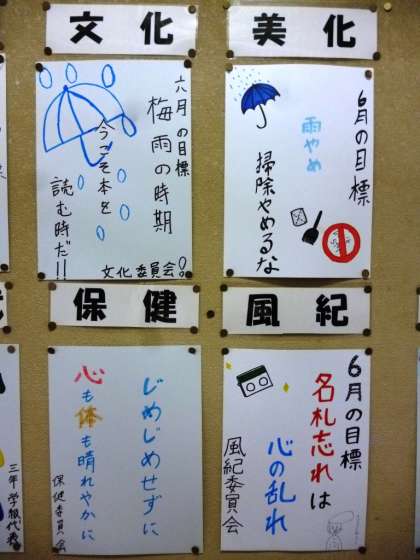 文化
六月の目標
梅雨の時期
今こそ本を
読む時だ!!
文化委員会
美化
6月の目標
雨やめ
掃除やめるな
保健
じめじめせずに
心も体も晴れやかに
保健委員会
風紀
6月の目標
名札忘れは
心の乱れ
風紀委員会
三年学級代表